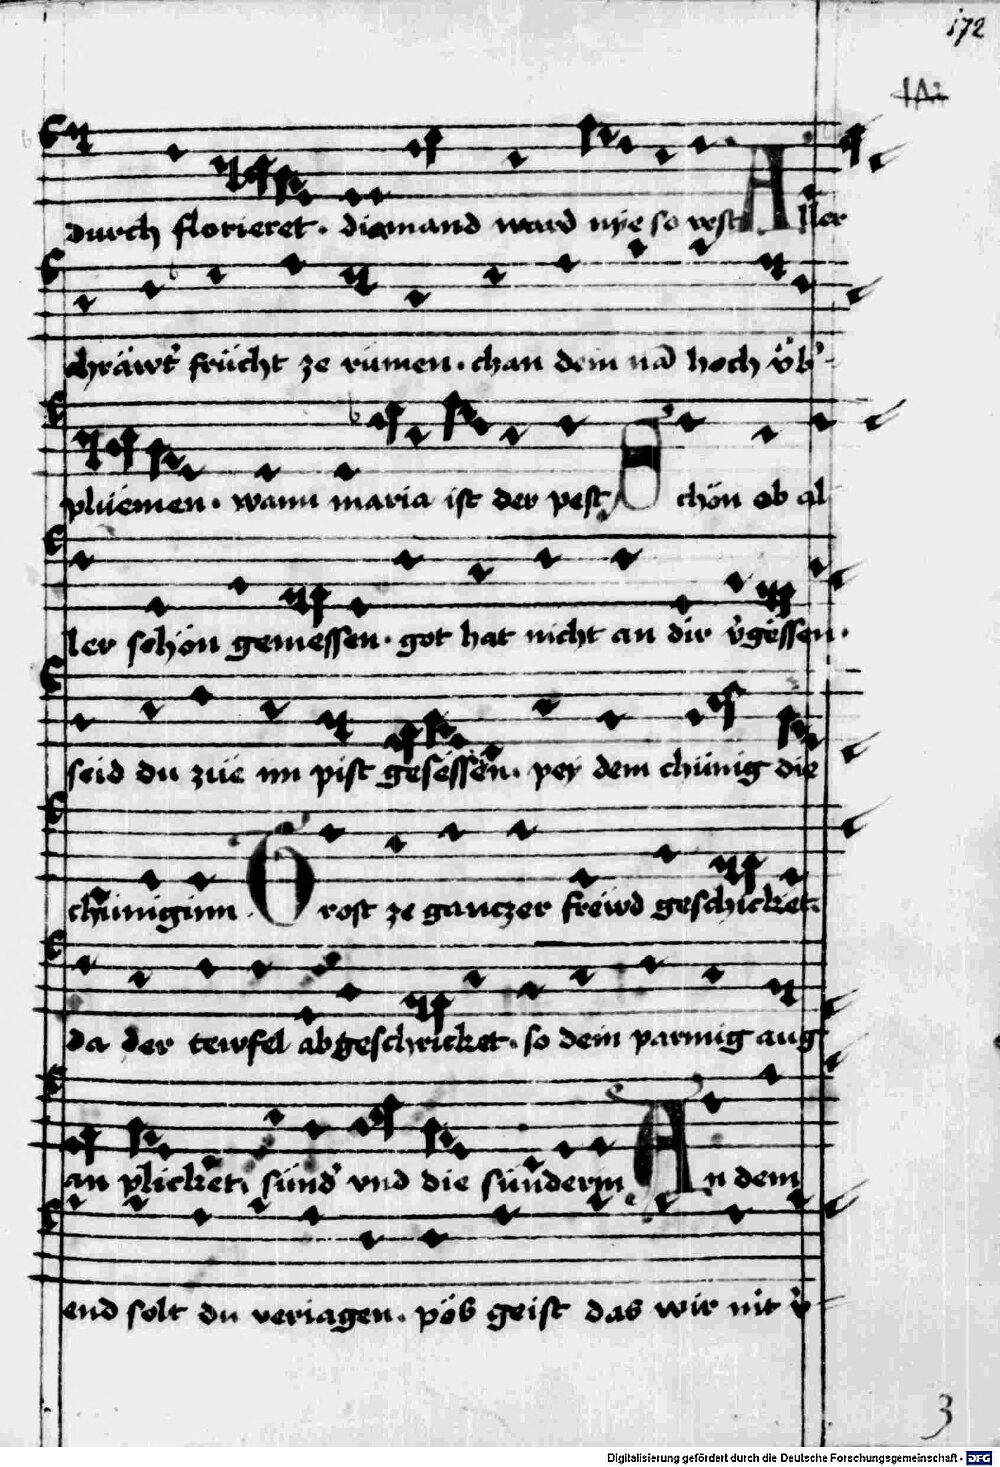 172
durch florieret · diamand ward nye so vest Aller
chräwt' frücht ze rümen · chan dem nā hoch v̈b'
plüemen · wann maria ist der vest Schön ob al
ler schön gemessen · got hat nicht an dir v'gessen ·
seid du züe im pist gesëssen · pey dem chünig die
chüniginn · Trost ze ganczer frëwd geschicket
da der tewfel abgeschricket · so dein parmig aug
an plicket · sünd' vnd die sünderin An dem
end solt du veriagen · pös geist das wir nit v'
3
Digitalisierung gefördert durch die Deutsche Forschungsgemeinschaft - DFG